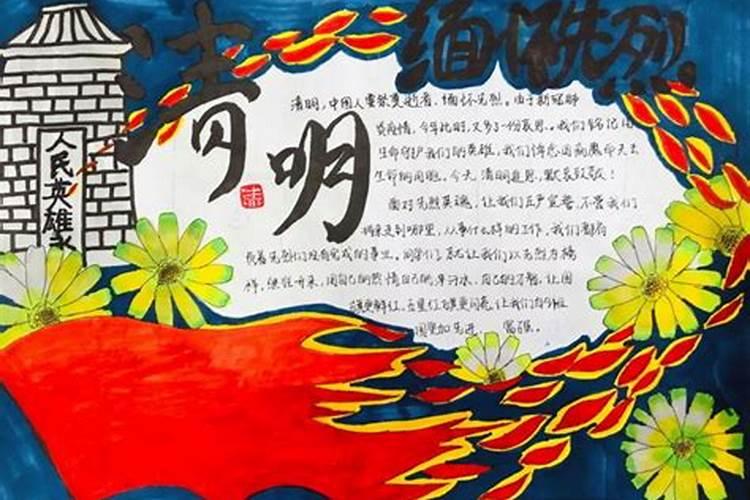 清明
缅怀先烈
人民英雄永
清明,中国人要祭奠逝者,缅怀先烈。由于新冠肺
炎疫情,今年此时,又多了一份哀思。我们铭记用
生命守护我们的英雄,我们悼念因病魔命失去
生命的同胞。今天清明追思,默哀致敬!
面对先烈英魂,让我们庄严宣誓,不管我们
将来走到哪里,从事什么样的工作,我们都有
先烈们没有完成的事业。同学们,就让我们以先烈为榜
样,继往开来,用自己的热情自己的汗水,自己的不懈,让国
旗更鲜红,五星红旗更闪亮,让我们的祖
国更加先进、富强。